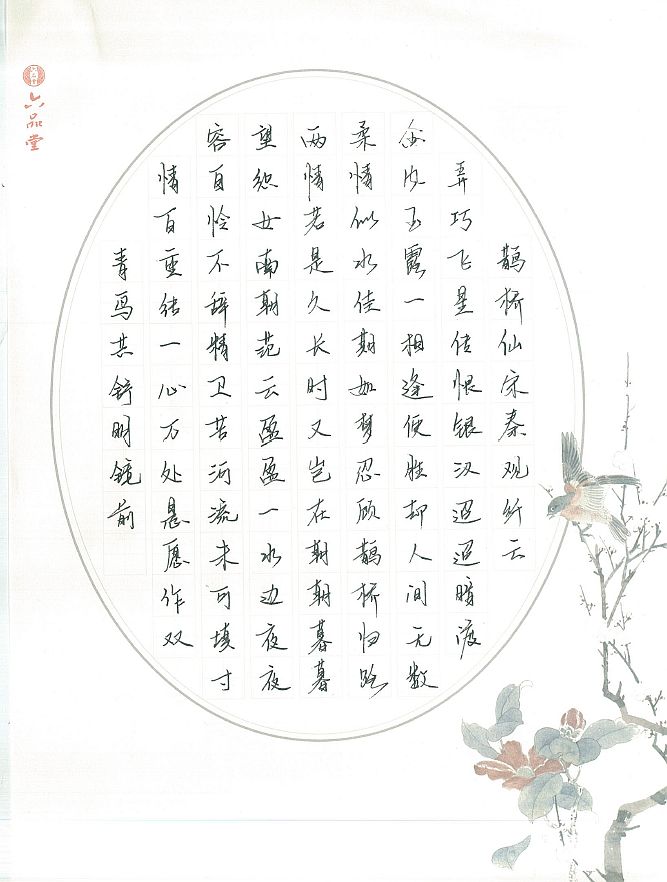 六品堂
鹊桥仙宋秦观纤云
弄巧飞星传恨银汉迢迢暗渡
金风玉露一相逢便胜却人间无数
柔情似水佳期如梦忍顾鹊桥归路
两情若是久长时又岂在朝朝暮暮
望织女南朝范云盈盈一水边夜夜
容自怜不辞精卫苦河流未可填寸
情百重结一心万处悬愿作双
青鸟共舒明镜前